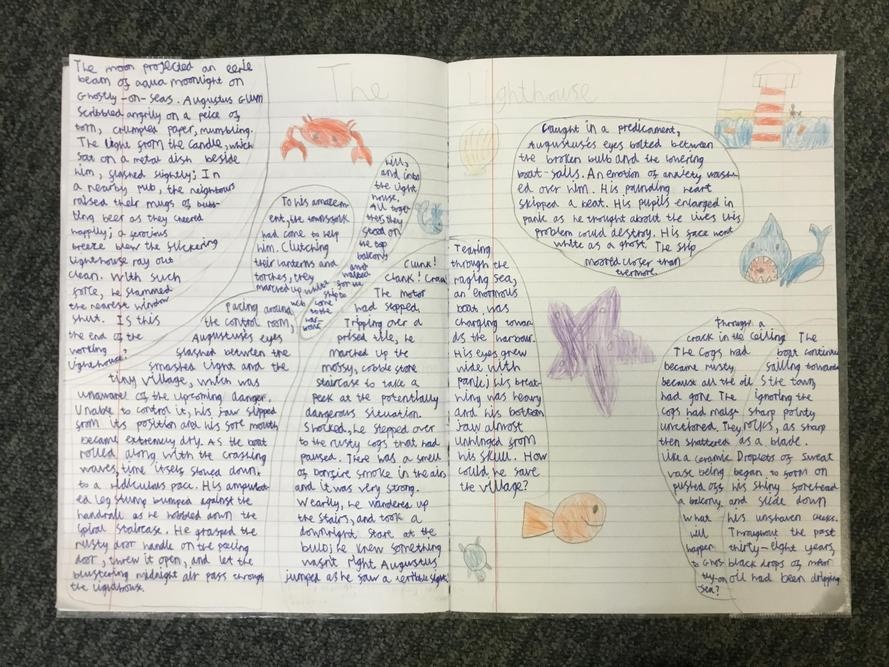 The Lighthouse
The moon projected an eerie
beam of aqua moonlight on
Ghostly-on-seas. Augustus Glum
Scribbled angrily on a peice of
torn, crumpled paper, mumbling.
The light from the candle, which
sat on a metal dish beside
him, flashed slightly; In
a nearby pub, the neighbours
raised their mugs of
beer as they cheered
happily; a ferocious
breeze blew the flickering
lighthouse ray out
clean. With such
force, he slammed
the nearest window
shut. Is this
the end of the
working
lighthouse?
Caught in a predicament,
Augustuses eyes bolted between
the broken bulb and the lowering
boat-sails. An emotion of anxiety wash
ed over him. His pounding heart
skipped a beat. His pupils enlarged in
panic as he thought about the lives this
problem could destroy. His face went
white as a ghost. The ship
moored closer than
evermore.
Pacing around
the control room,
Augustuses eyes
slashed between the
smashed light and the
tiny village, which was
unaware of the upcoming danger.
Unable to control it, his jaw slipped
from its position and his sore mouth
became extremely dry. As the boat
rolled along with the crashing
waves, time itself slowed down
to a ridiculous pace. His amputat
ed leg stump bumped against the
handrail as he hobbled down the
spiral staircase. He grasped the
rusty door handle on the
door, threw it open, and let the
blustering midnight air pass through
the lighthouse.
To his amazem
ent, the townsfolk
had come to help
him. Clutching
their lanterns and
torches, they
marched up
hill,
and into
the light
house.
All toge
ther, they
stood on
the top
balcony
and
for the
ship to
come
to the
har-
bour
Clunk!
Clank! Crack
The motor
had stopped.
Tripping over a
prised tile, he
marched up the
mossy, cobble stone
staircase to take a
peek at the potentially
dangerous situation.
Shocked, he stepped over
to the rusty cogs that had
paused. There was a smell
of bonfire smoke in the air
and it was very strong.
Wearily, he wandered up
the stairs, and took a
downright stare at the
bulb; he knew something
wasn't right Augustus
jumped as he saw a terrible sight
Tearing
through the
raging sea,
an enormous
boat, was
charging towar
ds the harbour.
His eyes grew
wide with
panic; his breat-
hing was heavy
and his bottom
jaw almost
unhinged from
his skull. How
could he save
the village?
The Cogs had
became rusty
because all the oil
had gone The
cogs had
uncoloured. They
then shattered
like a ceramic
vase being
pushed off
a balcony.
What
will
happen
to Ghos-
tly-on
sea?
through a
crack in the ceiling The
boat continue
sailing towards
the town
ignoring the
sharp pointy
rocks, as sharp
as a blade.
Droplets of sweat
began to form on
his shiny forehead
and slide down
his unshaven cheek.
Throughout the past
thirty-eight years,
black drops of motor
oil had been dripping